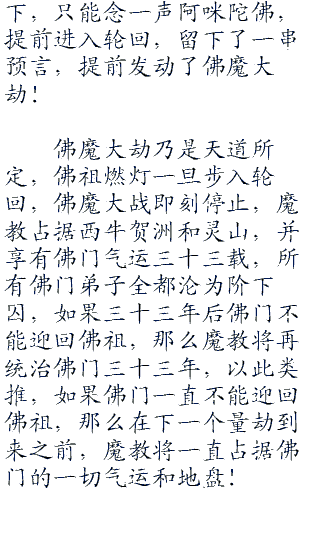 下，只能念一声阿咪陀佛，
提前进入轮回，留下了一串
预言，提前发动了佛魔大
劫！
佛魔大劫乃是天道所
定，佛祖燃灯一旦步入轮
回，佛魔大战即刻停止，魔
教占据西牛贺洲和灵山，并
享有佛门气运三十三载，所
有佛门弟子全都沦为阶下
囚，如果三十三年后佛门不
能迎回佛祖，那么魔教将再
统治佛门三十三年，以此类
推，如果佛门一直不能迎回
佛祖，那么在下一个量劫到
来之前，魔教将一直占据佛
门的一切气运和地盘！